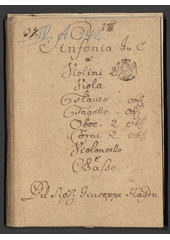 Sinfonia In C
a
Violini 2
Viola
Flauto obl:
Fagotto obl:
Oboe 2 obl:
Corni 2 obl:
Violoncello
e
Basso
Del Sigre Giuseppe Haydn